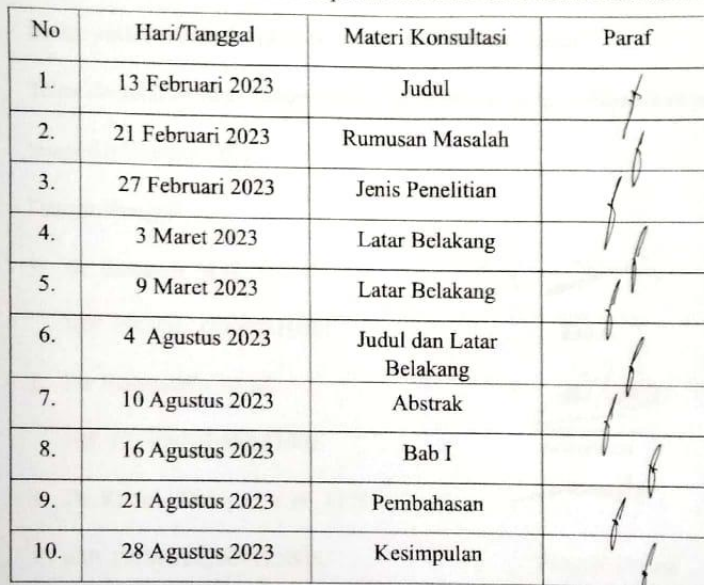 No Hari/Tanggal Materi Konsultasi Paraf
1. 13 Februari 2023 Judul
2. 21 Februari 2023 Rumusan Masalah
3. 27 Februari 2023 Jenis Penelitian
4. 3 Maret 2023 Latar Belakang
5. 9 Maret 2023 Latar Belakang
6. 4 Agustus 2023 Judul dan Latar
Belakang
7. 10 Agustus 2023 Abstrak
8. 16 Agustus 2023 Bab I
9. 21 Agustus 2023 Pembahasan
10. 28 Agustus 2023 Kesimpulan